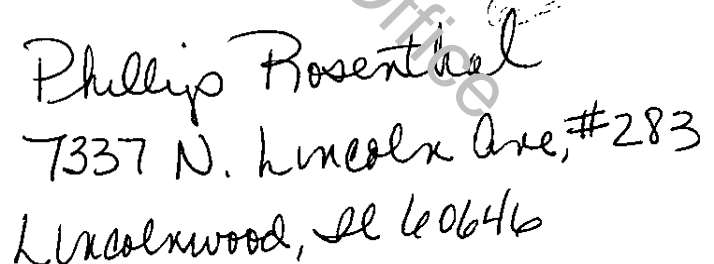 Office
Phillip Rosenthal
7337 N. Lincoln Ave, #283
Lincolnwood, Il 60646